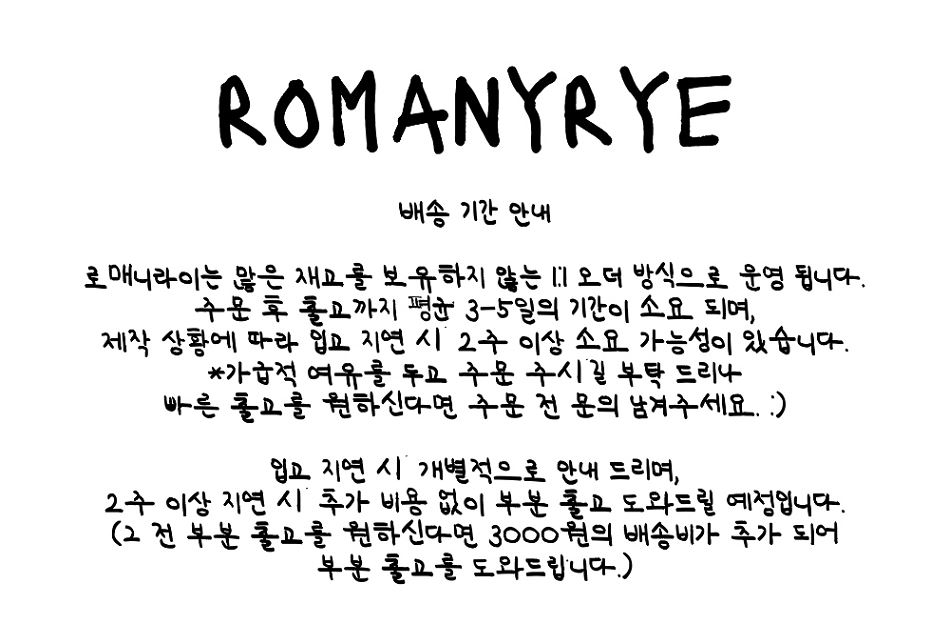 ROMANYRYE
배송 기간 안내
로매니라이는 많은 재고를 보유하지 않는 1:1 오더 방식으로 운영 됩니다.
주문 후 출고까지 평균 3-5일의 기간이 소요 되며,
제작 상황에 따라 입고 지연 시 2주 이상 소요 가능성이 있습니다.
*가급적 여유를 두고 주문 주시길 부탁 드리나
빠른 출고를 원하신다면 주문 전 문의 남겨주세요. :)
입고 지연 시 개별적으로 안내 드리며,
2주 이상 지연 시 추가 비용 없이 부분 출고 도와드릴 예정입니다.
(그 전 부분 출고를 원하신다면 3000원의 배송비가 추가 되어
부분 출고를 도와드립니다.)